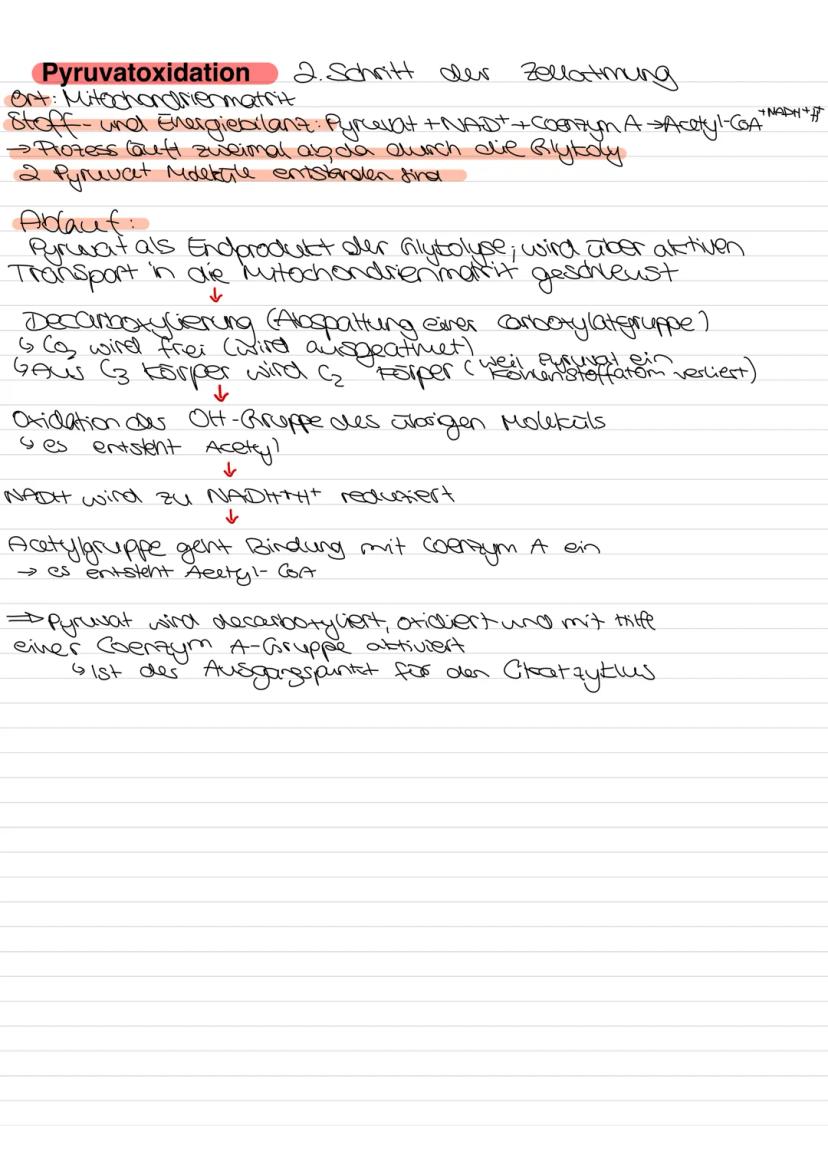 Pyruvatoxidation 2. Schritt der Zellatmung
Ort: Mitochondrienmatrix
Stoff- und Energiebilanz: Pyruvat + NAD+ + Coenzym A → Acetyl-CoA + NADH + H+
→ Prozess läuft zweimal ab, da durch die Glykoly
2 Pyruvat Moleküle entstanden sind
Ablauf:
Pyruvat als Endprodukt der Glykolyse; wird über aktiven
Transport in die Mitochondrienmatrix geschleust
↓
Decarboxylierung (Abspaltung einer Carboxylatgruppe)
↳ CO2 wird frei (wird ausgeatmet)
↳ Aus C3 Körper wird C2 Körper (weil Pyruvat ein Kohlenstoffatom verliert)
↓
Oxidation der OH-Gruppe des übrigen Moleküls
↳ es entsteht Acetyl
↓
NADH wird zu NADH+H+ reduziert
↓
Acetylgruppe geht Bindung mit Coenzym A ein
→ es entsteht Acetyl-CoA
⇒ Pyruvat wird decarboxyliert, oxidiert und mit Hilfe
einer Coenzym A-Gruppe aktiviert
↳ Ist der Ausgangspunkt für den Citratzyklus